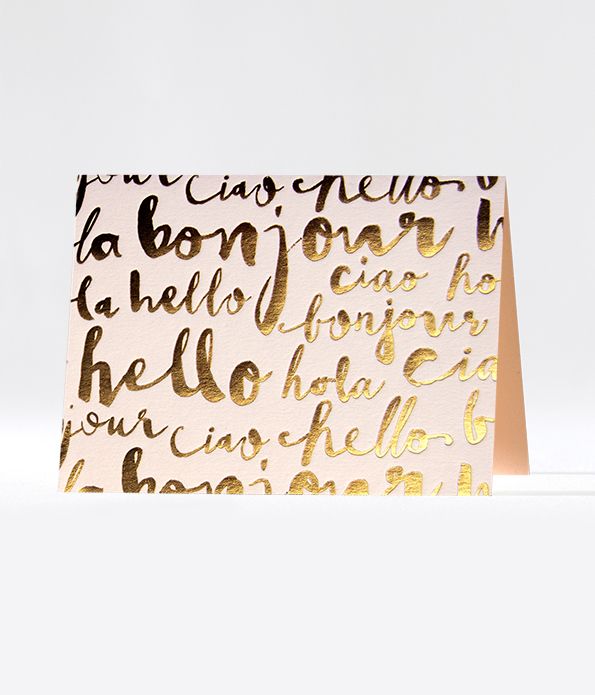 jour ciao hello
la bonjour
ciao ho
la hello
bonjour
hello hola cia
jour ciao hello b
la bonjour